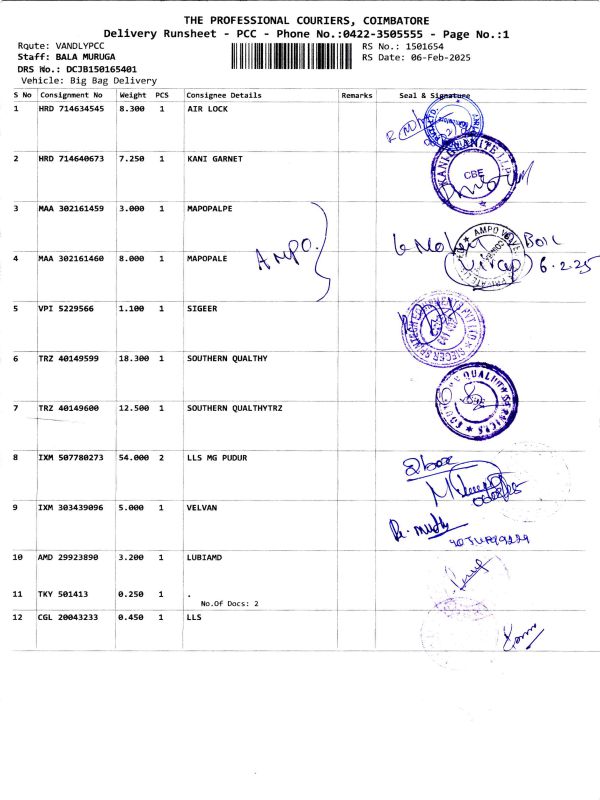 THE PROFESSIONAL COURIERS, COIMBATORE
Delivery Runsheet - PCC - Phone No.:0422-3505555 - Page No.:1
Route: VANDLYPCC
RS No.: 1501654
Staff: BALA MURUGA
RS Date: 06-Feb-2025
DRS No.: DCJB150165401
Vehicle: Big Bag Delivery
S No Consignment No Weight PCS Consignee Details Remarks Seal & Signature
1 HRD 714634545 8.300 1 AIR LOCK
2 HRD 714640673 7.250 1 KANI GARNET
KANI GRANITE LLP
CBE
3 MAA 302161459 3.000 1 MAPOPALPE
AMPO.
4 MAA 302161460 8.000 1 MAPOPALE
6.2.25
5 VPI 5229566 1.100 1 SIGEER
6 TRZ 40149599 18.300 1 SOUTHERN QUALTHY
7 TRZ 40149600 12.500 1 SOUTHERN QUALTHYTRZ
8 IXM 507780273 54.000 2 LLS MG PUDUR
2 box
9 IXM 303439096 5.000 1 VELVAN
10 AMD 29923890 3.200 1 LUBIAMD
11 TKY 501413 0.250 1 .
No.Of Docs: 2
12 CGL 20043233 0.450 1 LLS